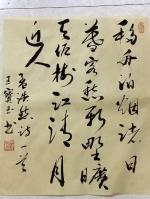 移舟泊烟渚日
暮客愁新野旷
天低树江清月
近人
孟浩然诗一首
王宝玉书